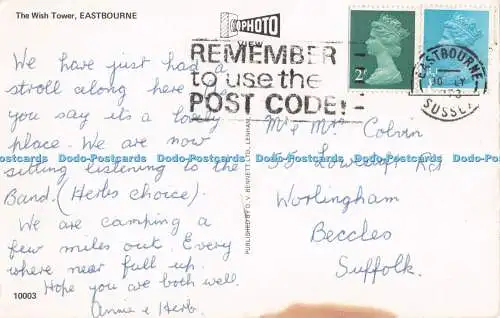 The Wish Tower, EASTBOURNE
PHOTO
VIEW
REMEMBER
to use the
POST CODE!
EASTBOURNE
SUSSEX
2
We have just had a
stroll along here
you say it's a lovely
place. We are now
sitting listening to the
Band. (Herbs choice).
We are camping a
few miles out. Every
where near full up.
Hope you are both well.
Annie & Herb.
10003
PUBLISHED BY D. V. BENNETT LTD., LENHAM,
Mr & Mrs Colvin
55 Lowestoft Rd
Worlingham
Beccles
Suffolk.
Dodo-Postcards Dodo-Postcards Dodo-Postcards Dodo-Postcards Dodo-Postcards Dodo-Postcards